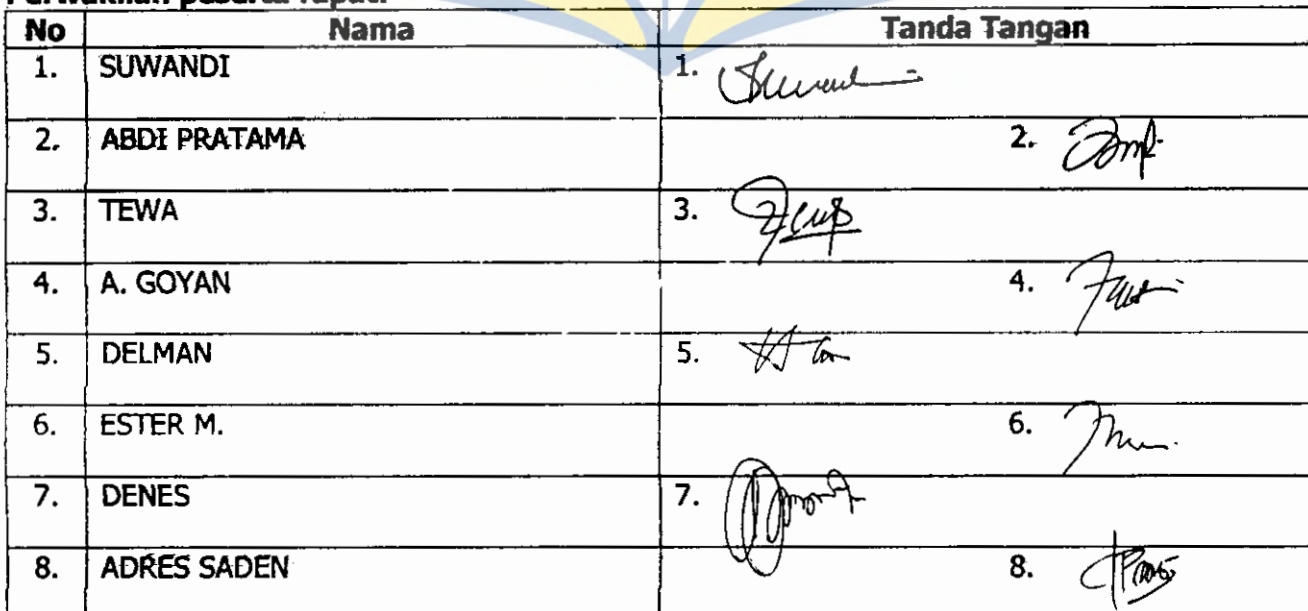 No Nama Tanda Tangan
1. SUWANDI 1.
2. ABDI PRATAMA 2.
3. TEWA 3.
4. A. GOYAN 4.
5. DELMAN 5.
6. ESTER M. 6.
7. DENES 7.
8. ADRES SADEN 8.